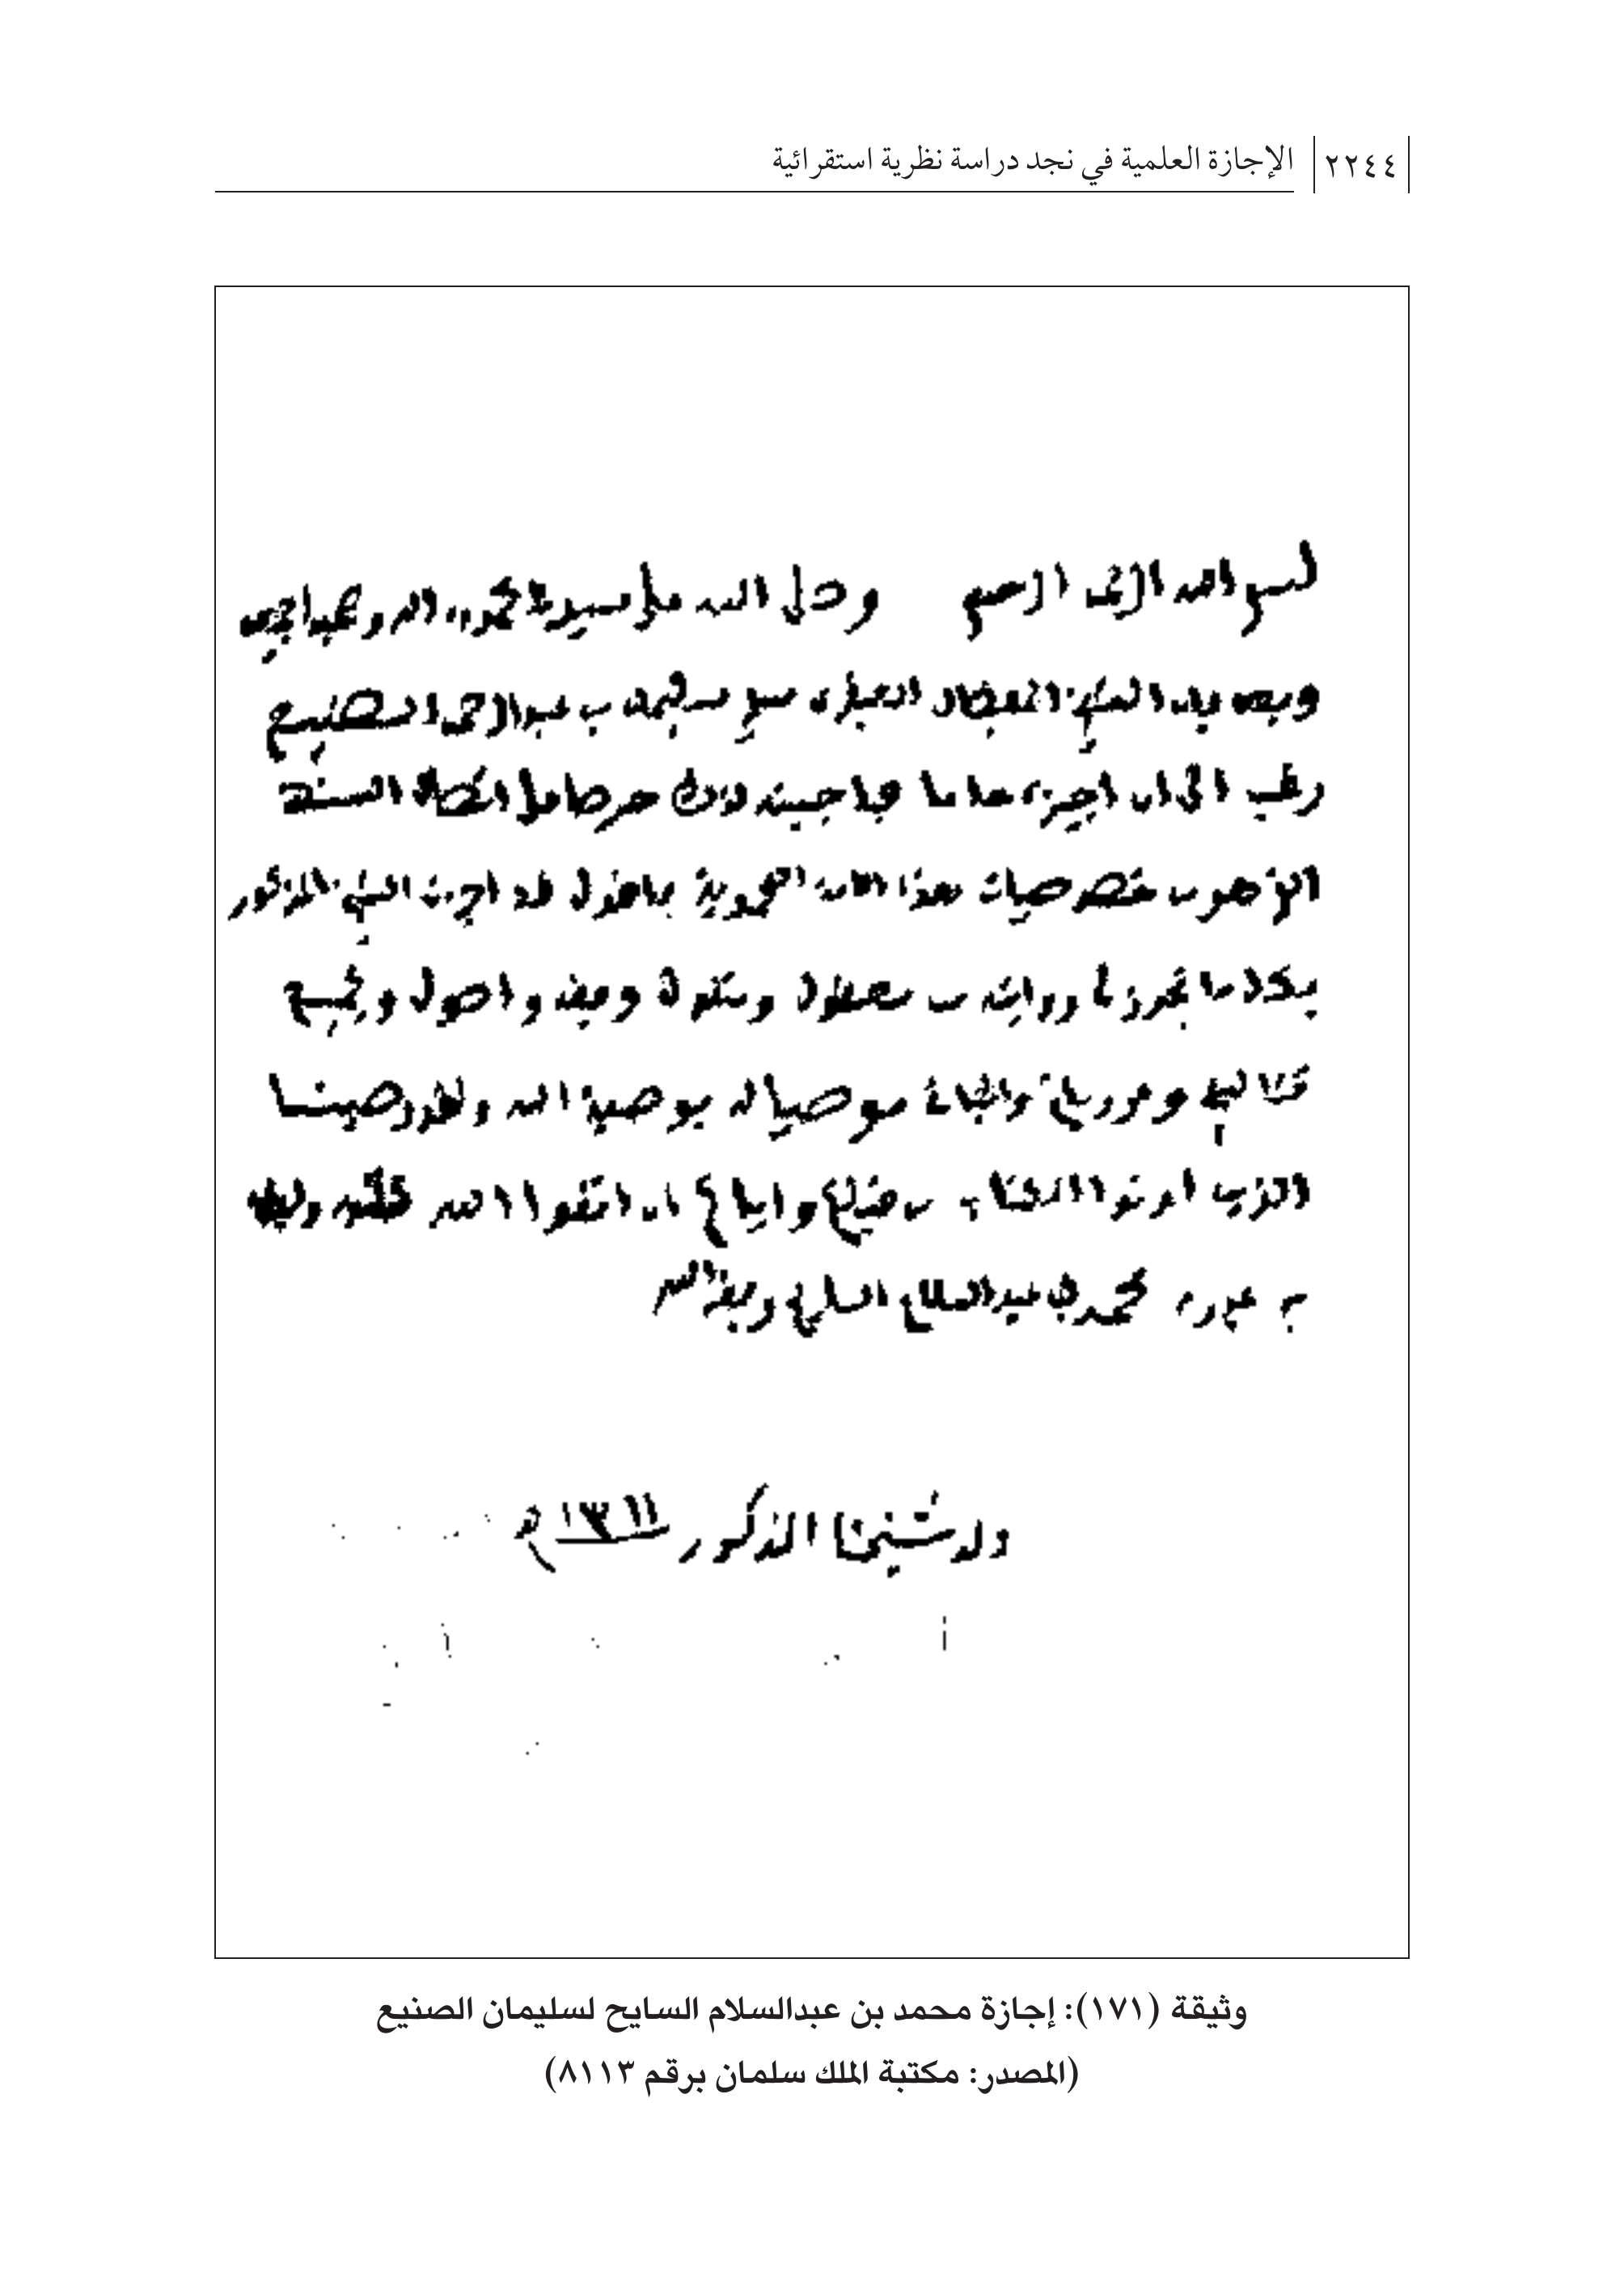 ٢٢٤٤ الإجازة العلمية في نجد دراسة نظرية استقرائية
بسم الله الرحمن الرحيم وصلى الله على سيدنا محمد وآله وصحبه أجمعين
وبعد فإن الشيخ الفاضل سليمان بن عبد الرحمن الصنيع
رغب الى ان اجيزه اجازة عامة فاجبته لذلك حرصا على اتصال السند
الذي هو من خصوصيات هذه الامة المحمدية فاقول قد اجزت الشيخ المذكور
بكل ما يجوز لي روايته من معقول ومنقول وفروع واصول وبجميع
موصيا له بوصية الله ولقد وصينا
الذين اوتوا الكتاب من قبلكم واياكم ان اتقوا الله
محمد بن عبد السلام السايح
ولد شيخنا المذكور ١٣١١ هـ
وثيقة (١٧١): إجازة محمد بن عبدالسلام السايح لسليمان الصنيع
(المصدر: مكتبة الملك سلمان برقم ٨١١٣)